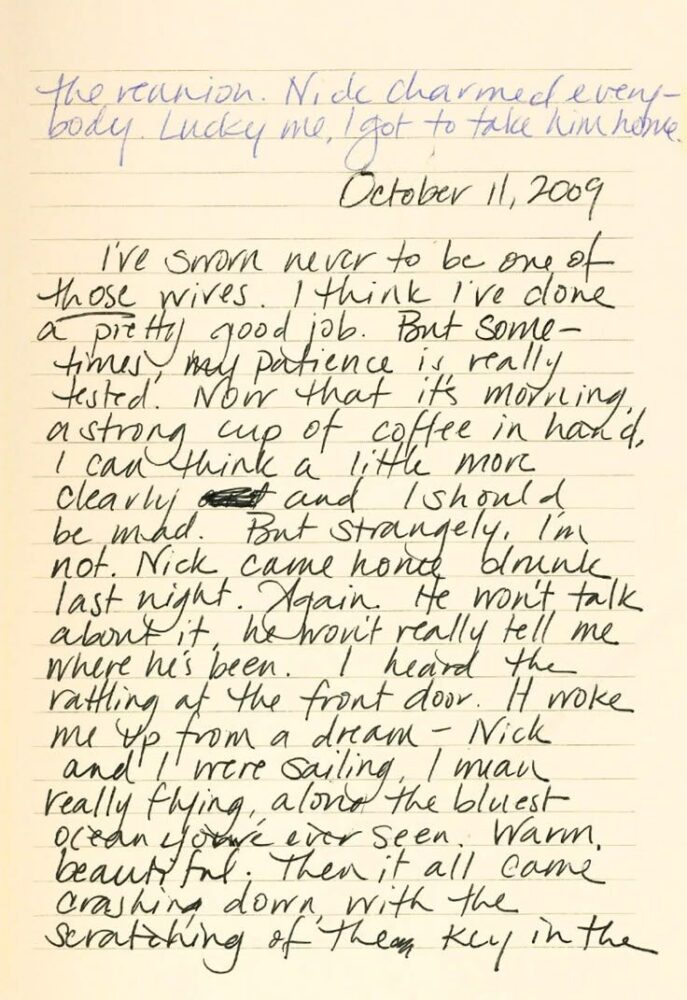 the reunion. Nick charmed every-
body. Lucky me, I got to take him home.
October 11, 2009
I've sworn never to be one of
those wives. I think I've done
a pretty good job. But some-
times, my patience is really
tested. Now that it's morning,
a strong cup of coffee in hand,
I can think a little more
clearly and I should
be mad. But strangely, I'm
not. Nick came home drunk
last night. Again. He won't talk
about it, he won't really tell me
where he's been. I heard the
rattling at the front door. It woke
me up from a dream - Nick
and I were sailing, I mean
really flying, along the bluest
ocean you've ever seen. Warm,
beautiful. Then it all came
crashing down with the
scratching of the key in the